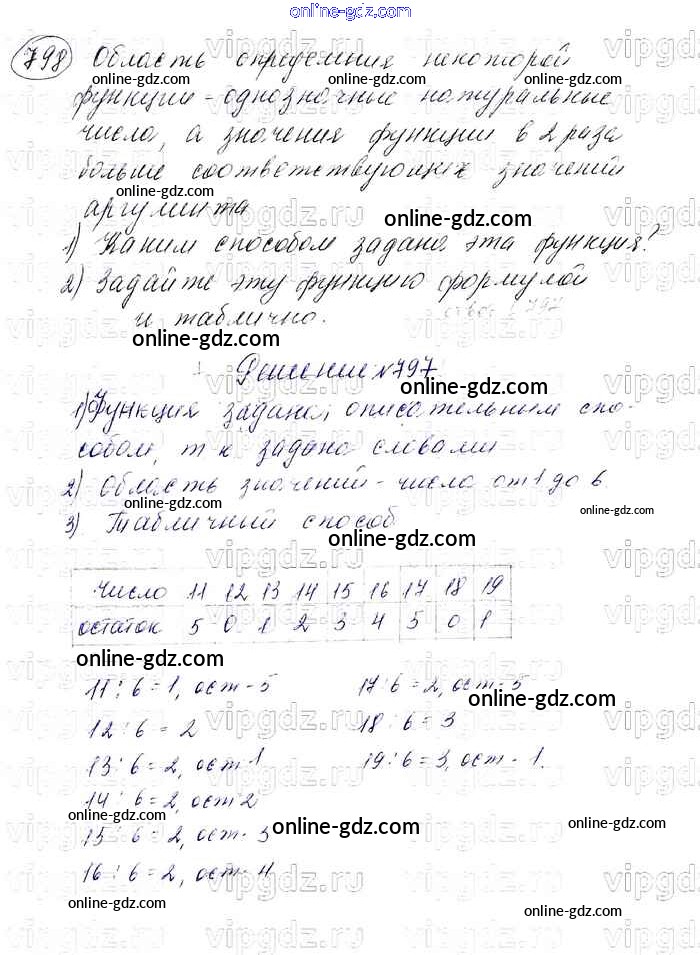 online-gdz.com
798 Область определния некоторой
функции - однозначные натуральные
числа, а значения функции в 2 раза
больше соответствующих значений
аргумента
1) Каким способом задана эта функция?
2) Задайте эту функцию формулой
и таблично.
Решение №797
1) Функция задана описательным спо-
собом, т к задана словами
2) Область значений - числа от 1 до 6.
3) Табличный способ
число 11 12 13 14 15 16 17 18 19
остаток 5 0 1 2 3 4 5 0 1
11 : 6 = 1, ост - 5 17 : 6 = 2, ост - 5
12 : 6 = 2 18 : 6 = 3
13 : 6 = 2, ост 1 19 : 6 = 3, ост - 1.
14 : 6 = 2, ост 2
15 : 6 = 2, ост - 3
16 : 6 = 2, ост - 4